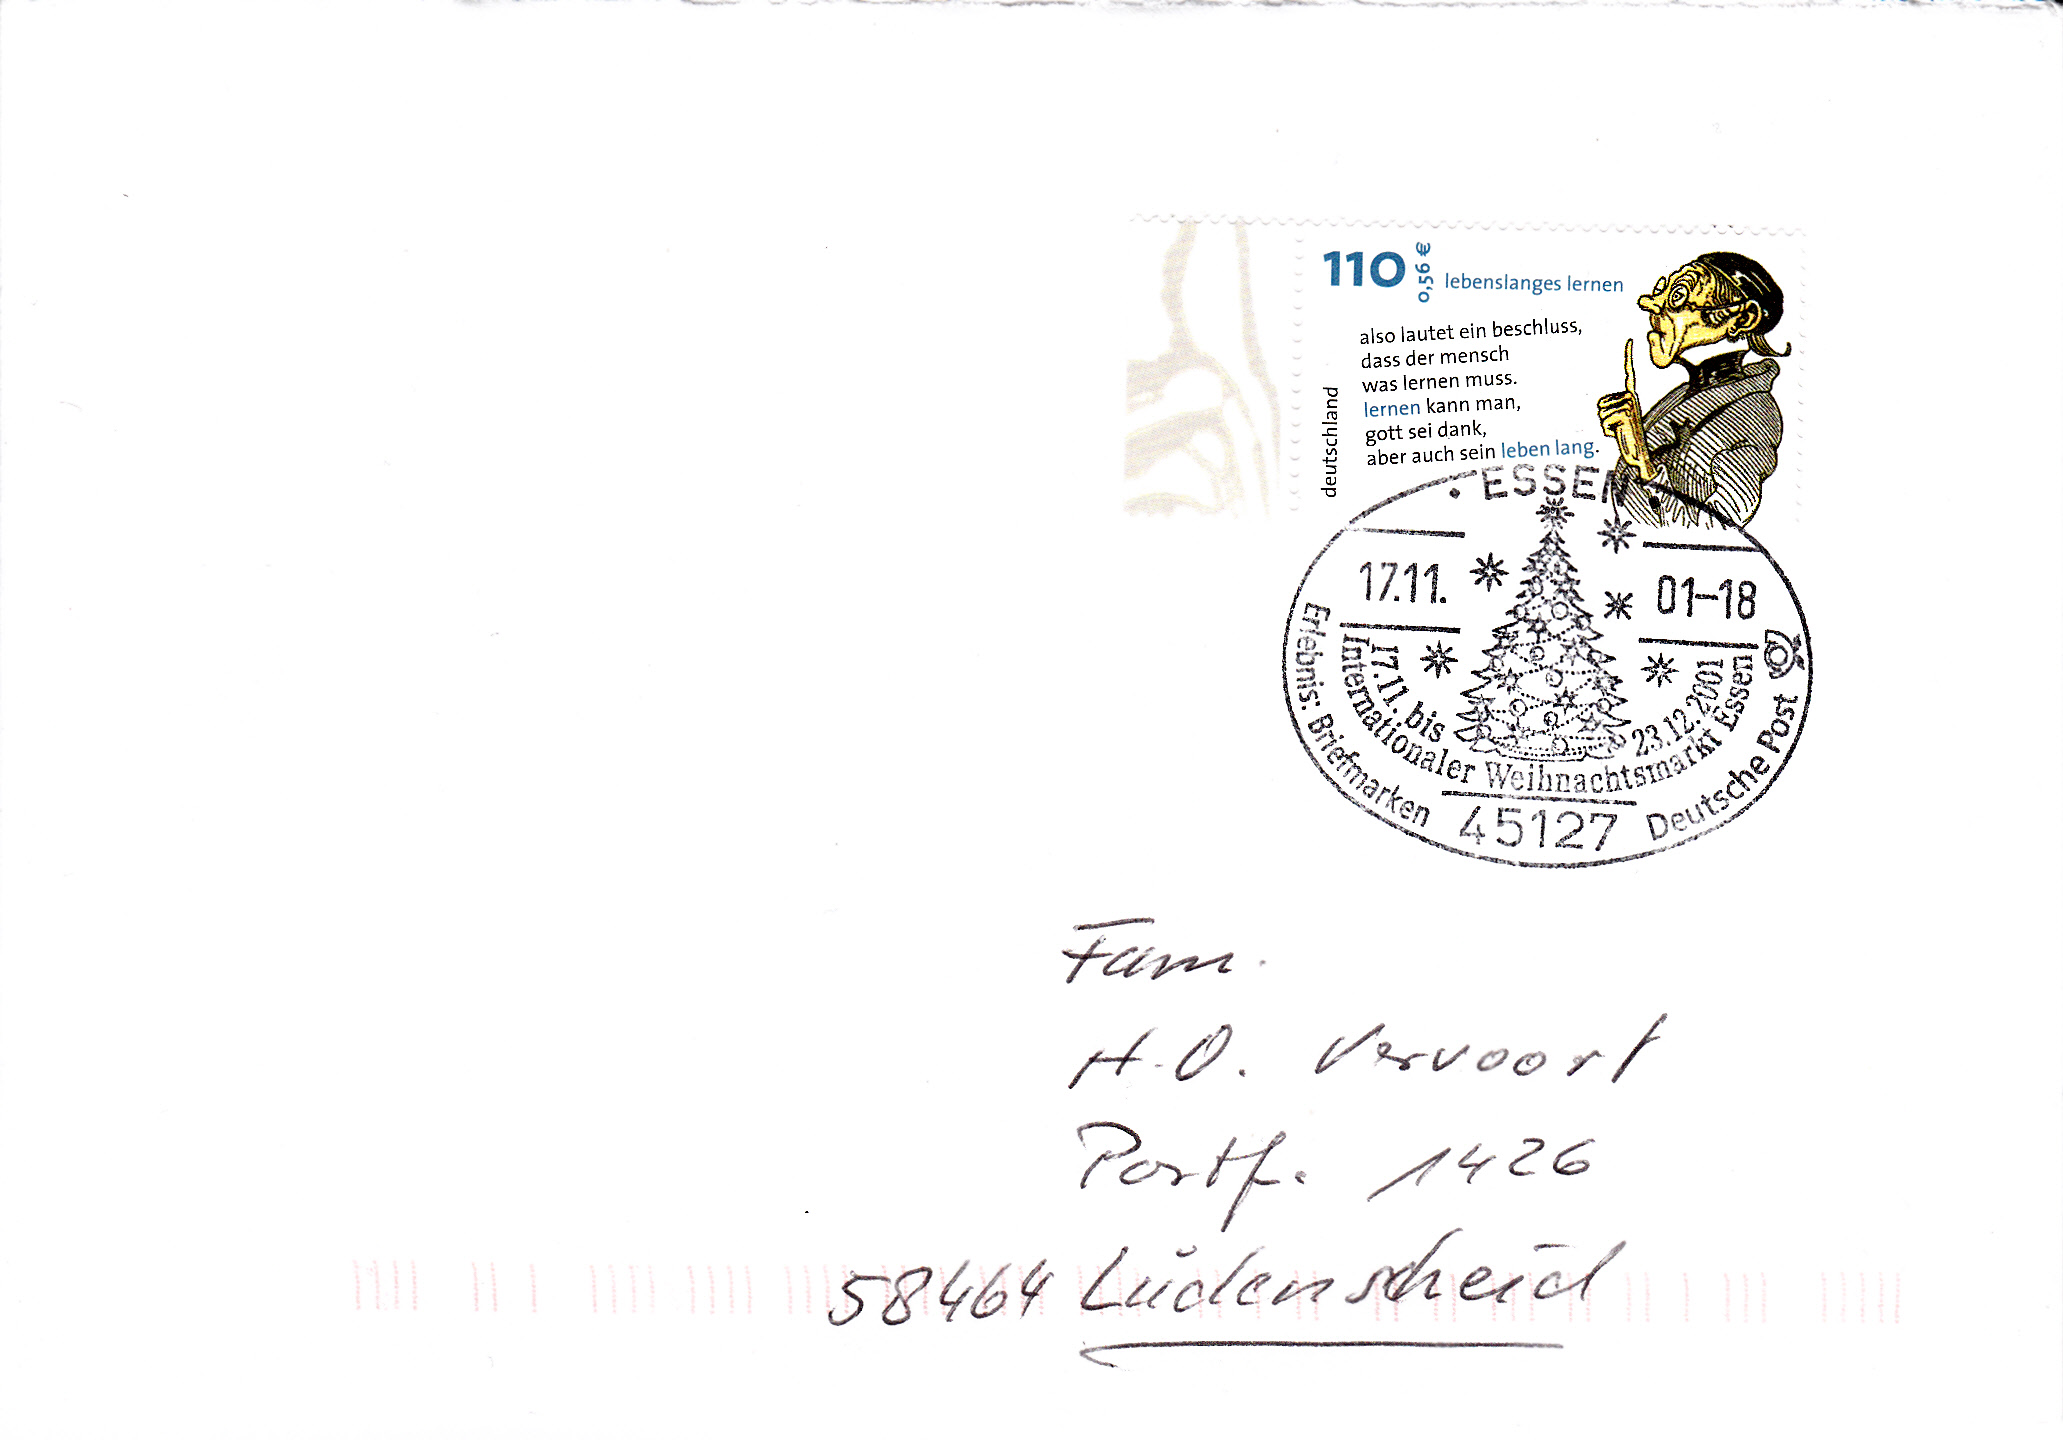 110
0,56 €
lebenslanges lernen
also lautet ein beschluss,
dass der mensch
was lernen muss.
lernen kann man,
gott sei dank,
aber auch sein leben lang.
deutschland
ESSEN
17.11.
01-18
17.11. bis 23.12.2001
Internationaler Weihnachtsmarkt Essen
Erlebnis: Briefmarken
45127
Deutsche Post
Fam.
H.O. Vervoort
Postf. 1426
58464 Lüdenscheid